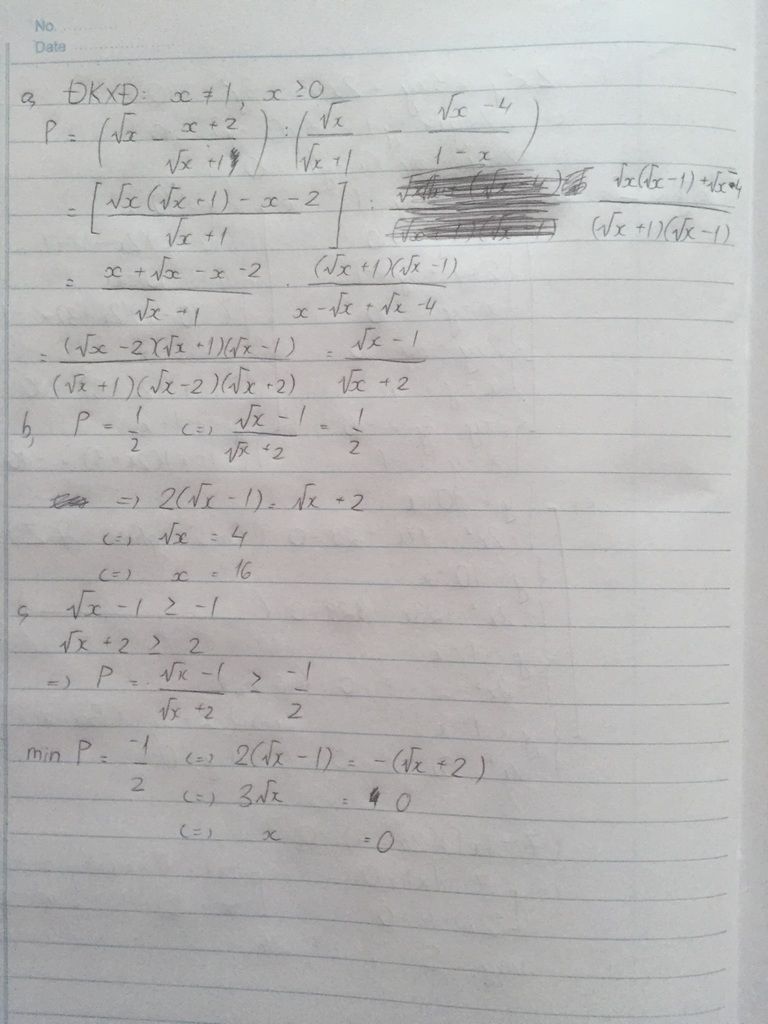 No.
Date
a, ĐKXĐ: x ≠ 1, x ≥ 0
P = (√x - (x + 2)/(√x + 1)) : (√x/(√x + 1) - (√x - 4)/(1 - x))
= [(√x(√x + 1) - x - 2)/(√x + 1)] : (√x(√x - 1) + √x - 4)/((√x + 1)(√x - 1))
= (x + √x - x - 2)/(√x + 1) . ((√x + 1)(√x - 1))/(x - √x + √x - 4)
= ((√x - 2)(√x + 1)(√x - 1))/((√x + 1)(√x - 2)(√x + 2)) = (√x - 1)/(√x + 2)
b, P = 1/2 (=) (√x - 1)/(√x + 2) = 1/2
=) 2(√x - 1) = √x + 2
(=) √x = 4
(=) x = 16
c, √x - 1 ≥ -1
√x + 2 ≥ 2
=) P = (√x - 1)/(√x + 2) ≥ -1/2
min P = -1/2 (=) 2(√x - 1) = -(√x + 2)
(=) 3√x = 0
(=) x = 0